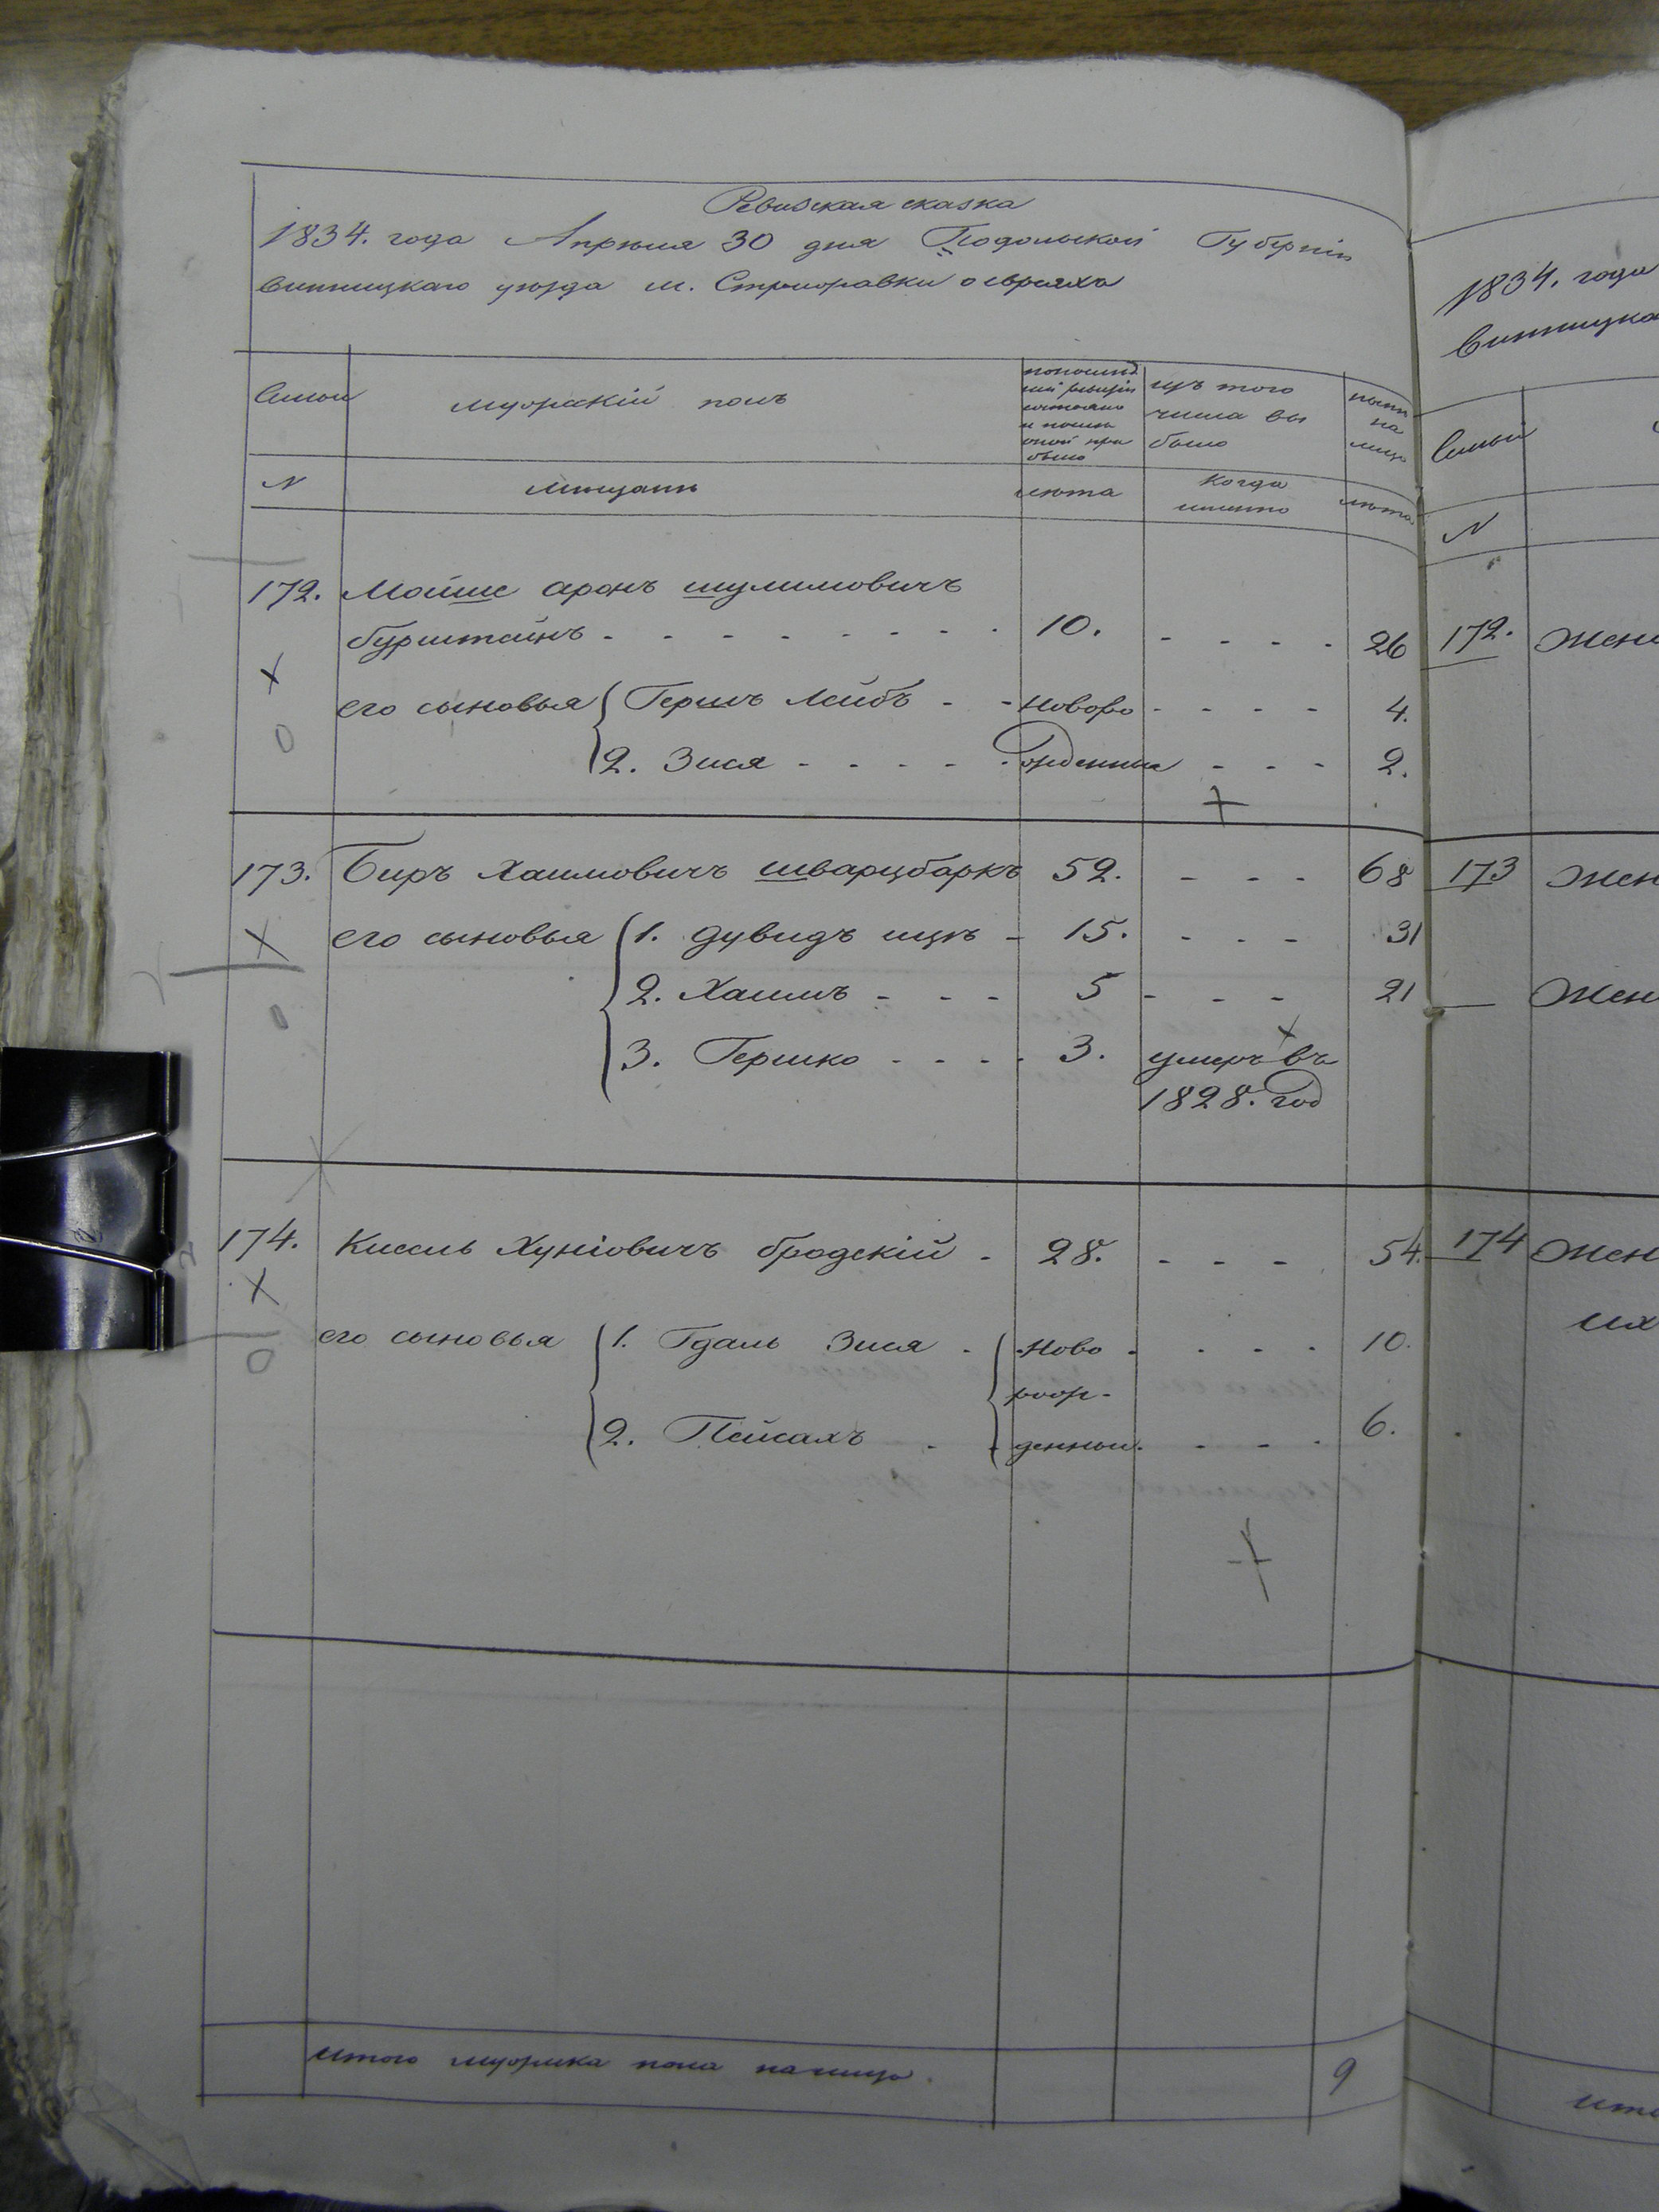 Ревизская сказка
1834. года Апрѣля 30 дня Подольской Губерніи
винницкаго уѣзда м. Стрижавки о евреяхъ
Семьи
мужескій полъ
попослѣд
ней ревизіи
состояло
и послѣ
оной при
было
изъ того
числа вы
было
нынѣ
на
лицо
N
мѣщанъ
лѣта
когда
именно
лѣта
172. Мойше аронъ шулимовичъ
бурштейнъ - - - - - - - - 10. - - - - 26
его сыновья Гершъ Лейбъ - - Новоро - - - - 4.
2. Зися - - - - - жденные - - - 2.
173. Биръ Хаимовичъ шварцбаркъ 52. - - - 68
его сыновья 1. дувидъ ицъ - 15. - - - 31
2. Хаимъ - - - 5 - - - 21
3. Гершко - - - - 3. умеръ въ
1828. год
174. Кисель Хуніовичъ бродскій - 28. - - - 54.
его сыновья 1. Гдаль Зися - Ново - - - - 10.
рож-
2. Пейсахъ - - денные. - - - 6.
итого мужска пола налицо. 9
1834. года
винницка
Семьи
N
172. Жен
173 Жен
Жен
174 Жен
их
ито